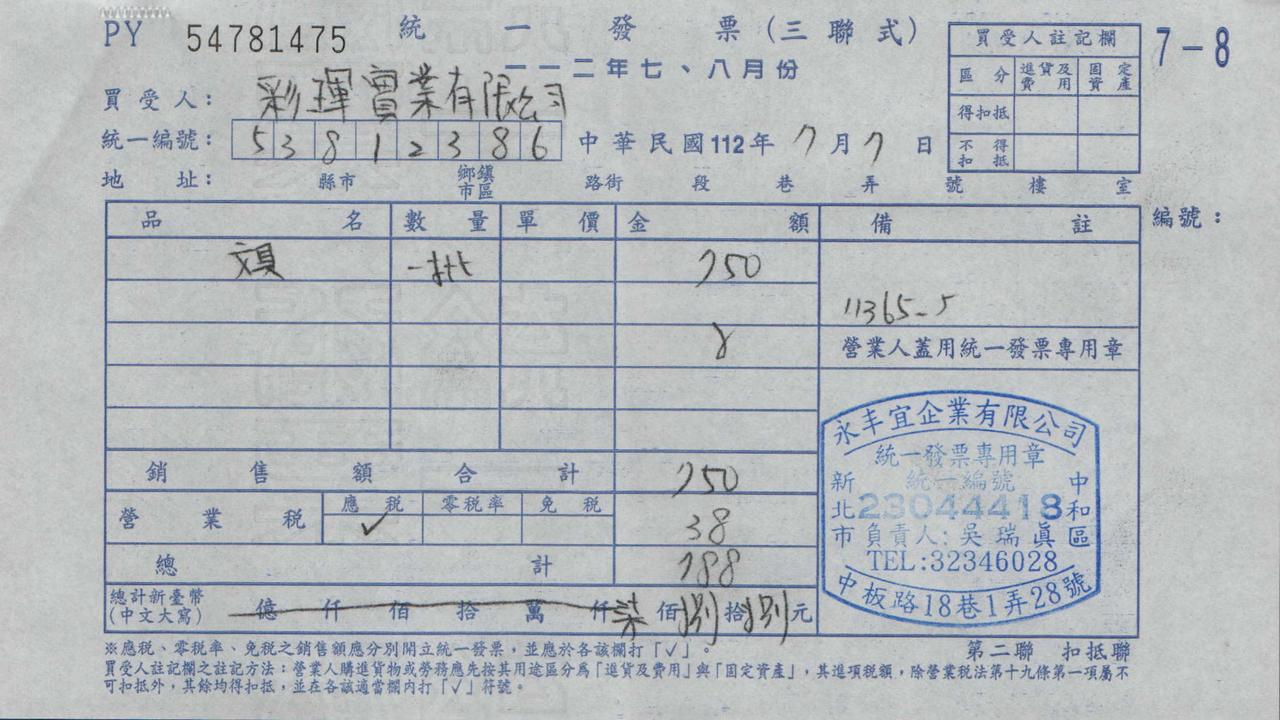 PY 54781475 統一發票(三聯式)
一一二年七、八月份
7-8
買受人註記欄
區分 進貨及費用 固定資產
得扣抵
不得扣抵
買受人: 彩琿實業有限公司
統一編號: 53812386 中華民國112年7月7日
地址: 縣市 鄉鎮市區 路街 段 巷 弄 號 樓 室
品名 數量 單價 金額 備註 編號:
文具 一批 750
11365-5
營業人蓋用統一發票專用章
銷售額合計 750
營業稅 應稅 ✓ 零稅率 免稅 38
總計 788
總計新臺幣(中文大寫) 億仟佰拾萬仟柒佰捌拾捌元
永丰宜企業有限公司
統一發票專用章
統一編號
23044418
負責人:吳瑞眞
TEL:32346028
新北市中和區
中板路18巷1弄28號
※應稅、零稅率、免稅之銷售額應分別開立統一發票,並應於各該欄打「✓」。
第二聯 扣抵聯
買受人註記欄之註記方法:營業人購進貨物或勞務應先按其用途區分為「進貨及費用」與「固定資產」,其進項稅額,除營業稅法第十九條第一項屬不
可扣抵外,其餘均得扣抵,並在各該適當欄內打「✓」符號。